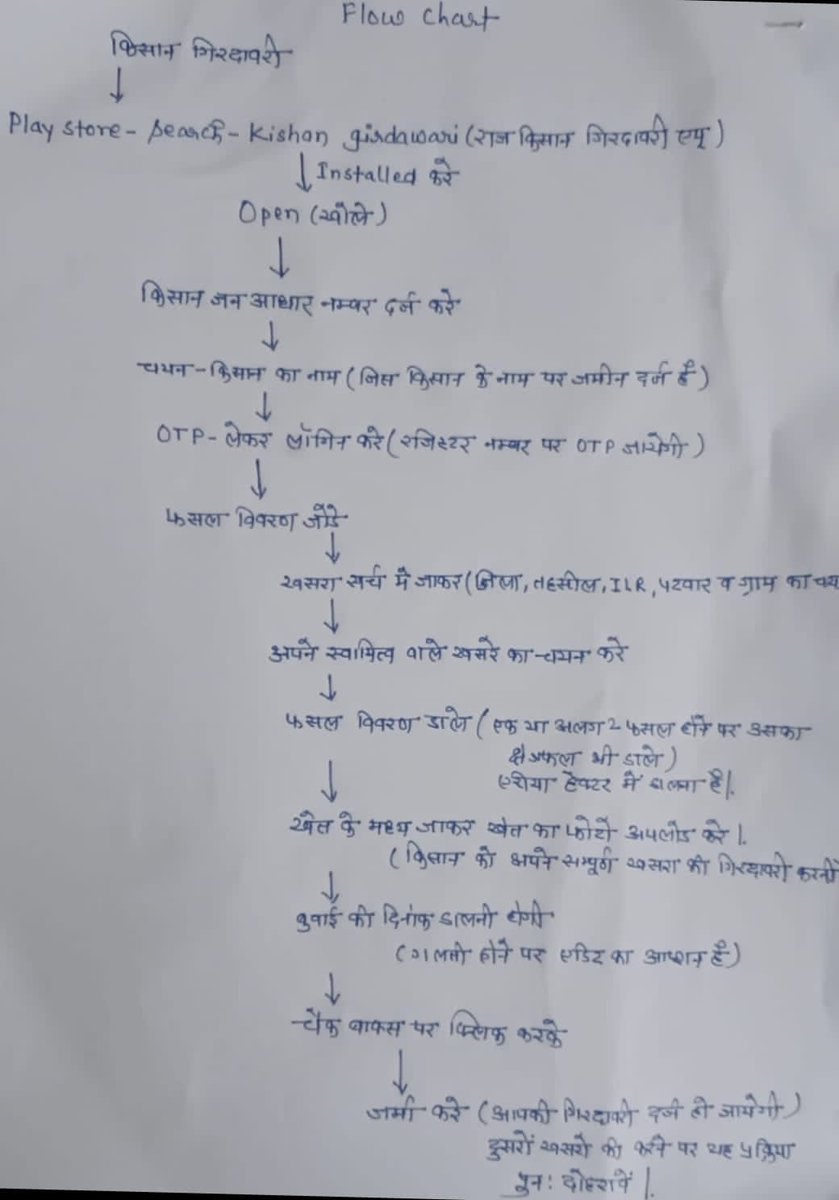 Flow Chart
किसान गिरदावरी
Play store - search - Kishan girdawari (राज किसान गिरदावरी एप)
Installed करे
Open (खोले)
किसान जन आधार नम्बर दर्ज करे
चयन - किसान का नाम (जिस किसान के नाम पर जमीन दर्ज है)
OTP - लेकर लॉगिन करे (रजिस्टर नम्बर पर OTP जायेगी)
फसल विवरण जोडे
खसरा सर्च मे जाकर (जिला, तहसील, ILR, पटवार व ग्राम का
अपने स्वामित्व वाले खसरे का चयन करे
फसल विवरण डाले (एक या अलग 2 फसल होने पर उसका
क्षेत्रफल भी डाले)
एरिया हेक्टर में डालना है।
खेत के मध्य जाकर खेत का फोटो अपलोड करे।
(किसान को अपने सम्पूर्ण खसरा की गिरदावरी करनी
बुवाई की दिनांक डालनी होगी
(गलती होने पर एडिट का आप्शन है)
चैक बाक्स पर क्लिक करके
जमा करे (आपकी गिरदावरी दर्ज हो जायेगी)
दुसरों खसरो की करने पर यह प्रक्रिया
पुन: दोहरावें।